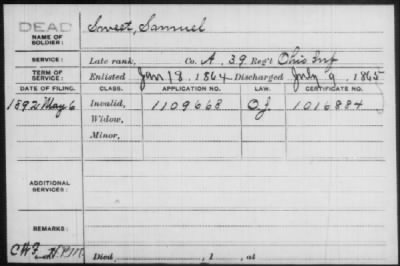 DEAD
NAME OF SOLDIER: Sweet, Samuel
SERVICE: Late rank, Co. A. 39 Reg't Ohio Inf
TERM OF SERVICE: Enlisted Jan 18. 1864 Discharged July 9. 1865
DATE OF FILING. CLASS. APPLICATION NO. LAW. CERTIFICATE NO.
1892 May 6 Invalid, 1109668 O.J. 1016884
Widow,
Minor,
ADDITIONAL SERVICES:
REMARKS:
Died , 1 , at